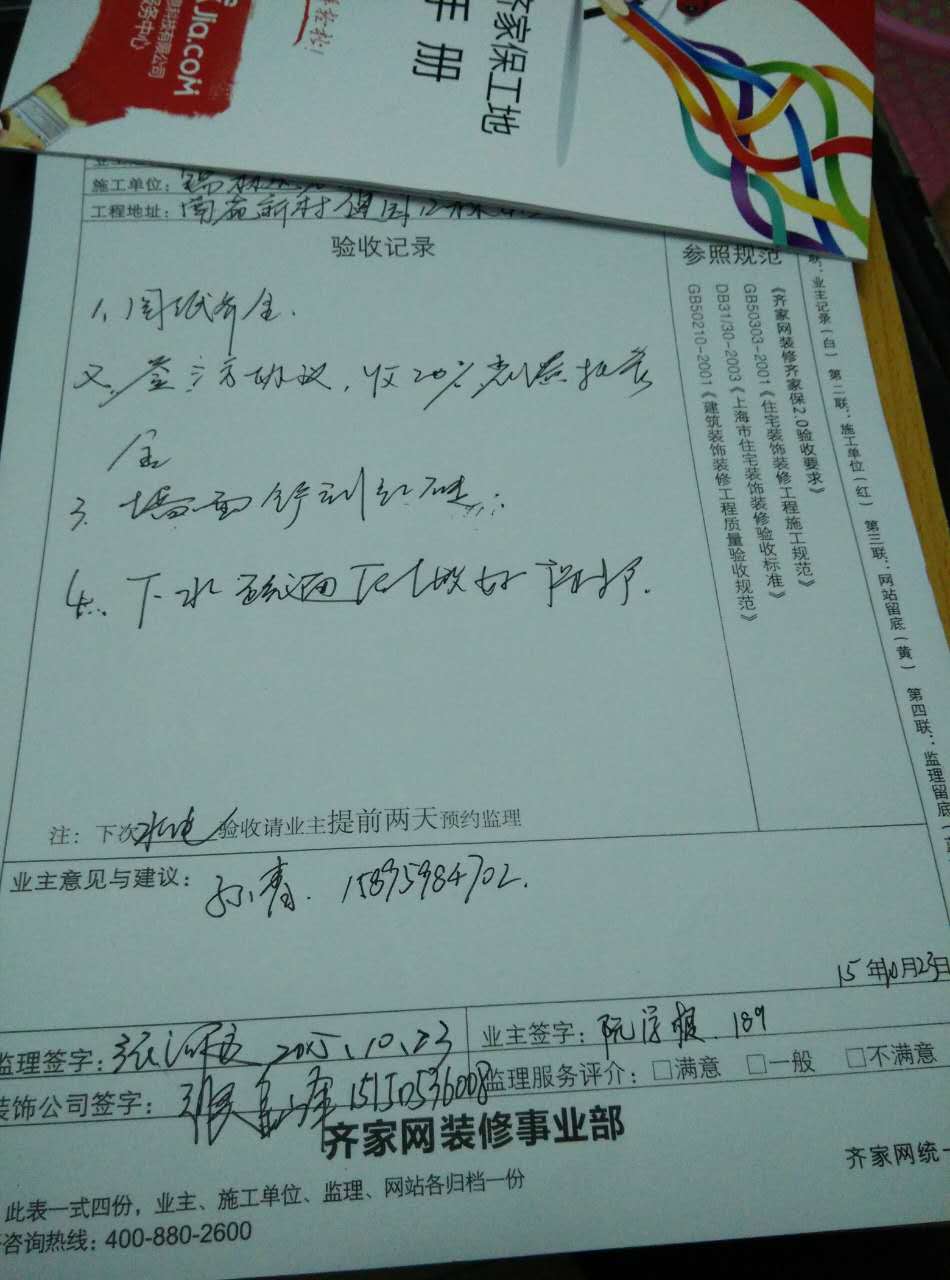 Jia.com
科技有限公司
服务中心
手册
齐家保工地
施工单位：
工程地址：
验收记录
参照规范
1、图纸齐全.
2. 签三方协议，收20%
金
3、墙面铲到红砖
4、下水
《齐家网装修齐家保2.0验收要求》
GB50303-2001《住宅装饰装修工程施工规范》
DB31/30-2003《上海市住宅装饰装修验收标准》
GB50210-2001《建筑装饰装修工程质量验收规范》
联：业主记录（白） 第二联：施工单位（红） 第三联：网站留底（黄） 第四联：监理留底
注：下次水电验收请业主提前两天预约监理
业主意见与建议：孙青. 15895984702.
15年10月23日
监理签字：2015、10、23
业主签字：阮 189
装饰公司签字：15150536008
监理服务评介：□满意 □一般 □不满意
齐家网装修事业部
齐家网统一
此表一式四份，业主、施工单位、监理、网站各归档一份
咨询热线：400-880-2600